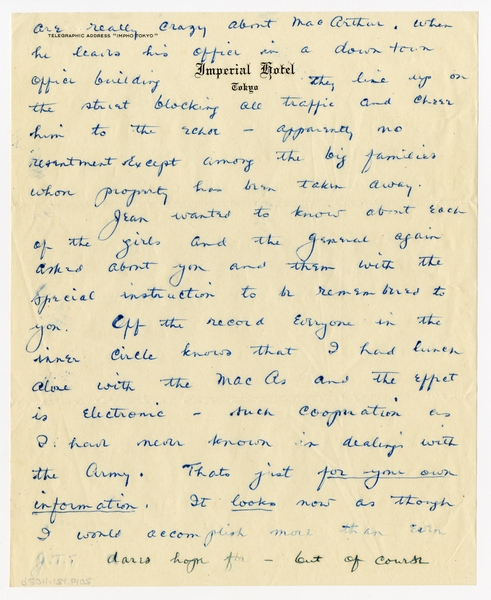 are really crazy about MacArthur. When
TELEGRAPHIC ADDRESS "IMPHO TOKYO"
he leaves his office in a down town
Imperial Hotel
Tokyo
office building they line up on
the street blocking all traffic and cheer
him to the echo – apparently no
resentment except among the big families
whose property has been taken away.
Jean wanted to know about each
of the girls and the General again
asked about you and them with the
special instruction to be remembered to
you. Off the record everyone in the
inner circle knows that I had lunch
alone with the MacAs and the effect
is electronic – such cooperation as
I have never known in dealings with
the Army. Thats just for your own
information. It looks now as though
I would accomplish more than even
dares hope for – but of course